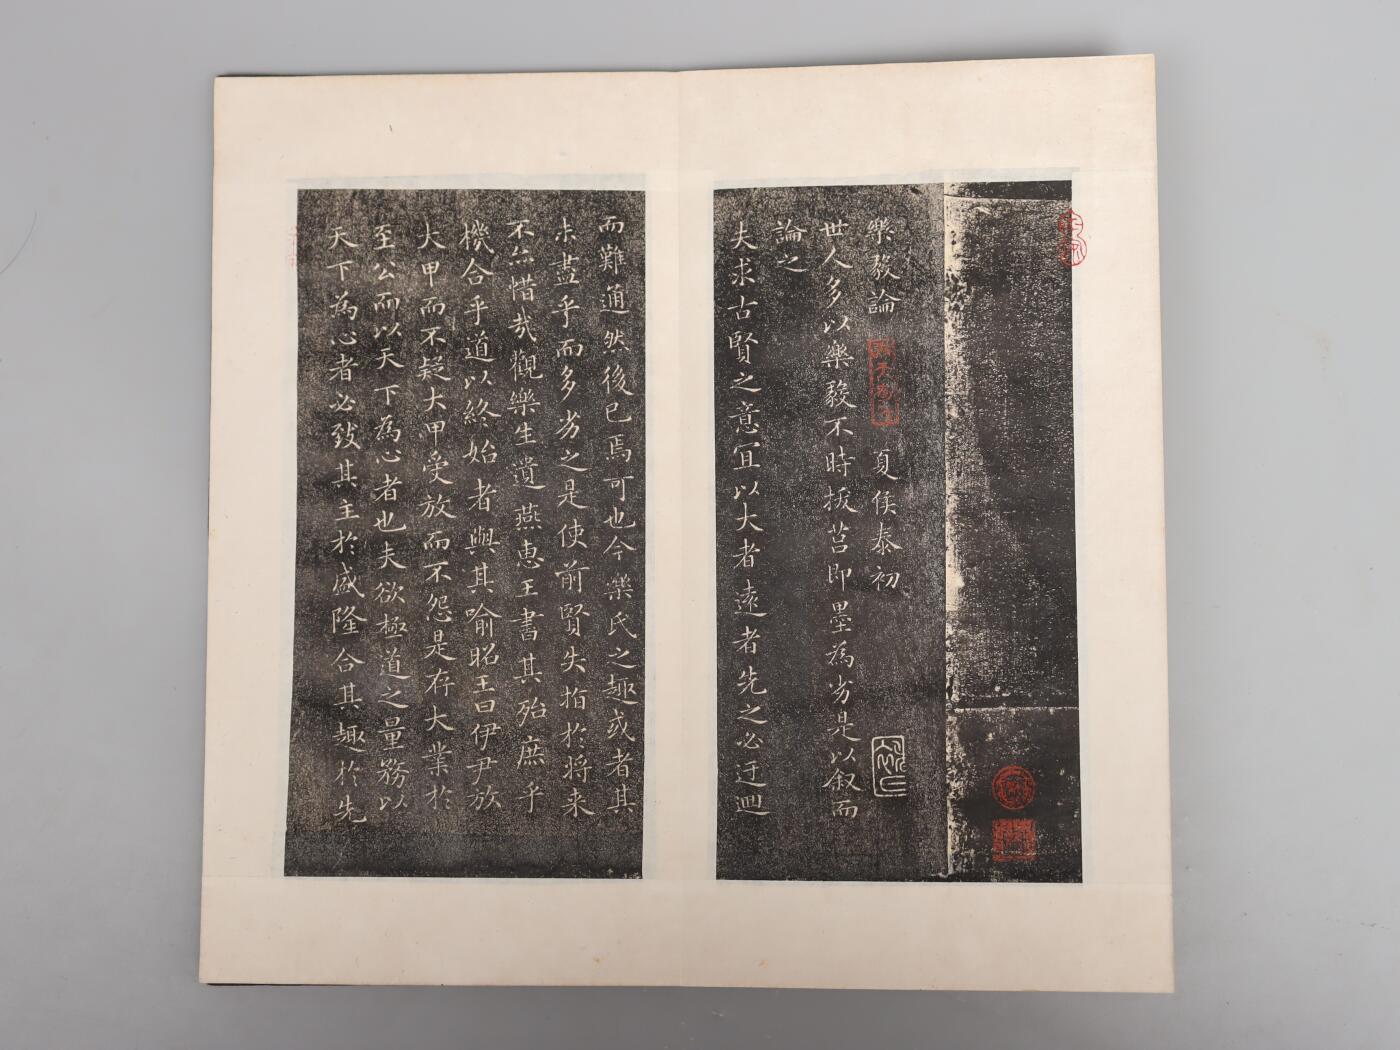 樂毅論 夏侯泰初
世人多以樂毅不時拔莒即墨為劣是以叙而
論之
夫求古賢之意宜以大者遠者先之必迂迴
而難通然後已焉可也今樂氏之趣或者其
未盡乎而多劣之是使前賢失指於將来
不亦惜哉觀樂生遺燕惠王書其殆庶乎
機合乎道以終始者與其喻昭王曰伊尹放
大甲而不疑大甲受放而不怨是存大業於
至公而以天下為心者也夫欲極道之量務以
天下為心者必致其主於盛隆合其趣於先